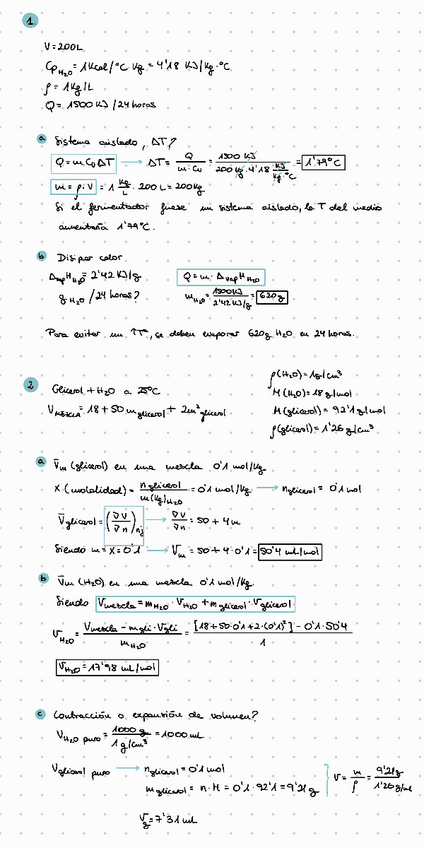 1
V = 200 L
Cp H2O = 1 Kcal/°C · Kg = 4'18 KJ/Kg · °C
ρ = 1 Kg/L
Q = 1500 KJ / 24 horas
a Sistema aislado, ΔT?
Q = m Cp ΔT → ΔT = Q / m · Cp = 1500 KJ / 200 Kg · 4'18 KJ/Kg · °C = 1'79 °C
m = ρ · V = 1 Kg/L · 200 L = 200 Kg
Si el fermentador fuese un sistema aislado, la T del medio
aumentaría 1'79 °C.
b Disipar calor
ΔvapH H2O = 2'42 KJ/g
Q = m · ΔvapH H2O
g H2O / 24 horas?
m H2O = 1500 KJ / 2'42 KJ/g = 620 g
Para evitar un ↑Tª, se deben evaporar 620 g H2O en 24 horas.
2 Glicerol + H2O a 25°C
V mezcla = 18 + 50 m glicerol + 2 m² glicerol
ρ(H2O) = 1 g/cm³
M(H2O) = 18 g/mol
M(glicerol) = 92'1 g/mol
ρ(glicerol) = 1'26 g/cm³
a V̄m (glicerol) en una mezcla 0'1 mol/Kg
X (molalidad) = n glicerol / m(Kg) H2O = 0'1 mol/Kg → n glicerol = 0'1 mol
V̄ glicerol = (∂V / ∂n) nj → ∂V / ∂n = 50 + 4m
Siendo m = X = 0'1 → V̄m = 50 + 4 · 0'1 = 50'4 mL/mol
b V̄m (H2O) en una mezcla 0'1 mol/Kg
Siendo V mezcla = m H2O · V H2O + m glicerol · V glicerol
V H2O = V mezcla - m gli · V gli / m H2O = [18 + 50 · 0'1 + 2 · (0'1)²] - 0'1 · 50'4 / 1
V H2O = 17'98 mL/mol
c Contracción o expansión de volumen?
V H2O puro = 1000 g / 1 g/cm³ = 1000 mL
V glicerol puro → n glicerol = 0'1 mol
m glicerol = n · M = 0'1 · 92'1 = 9'21 g
V = m / ρ = 9'21 g / 1'26 g/mL
Vg = 7'31 mL